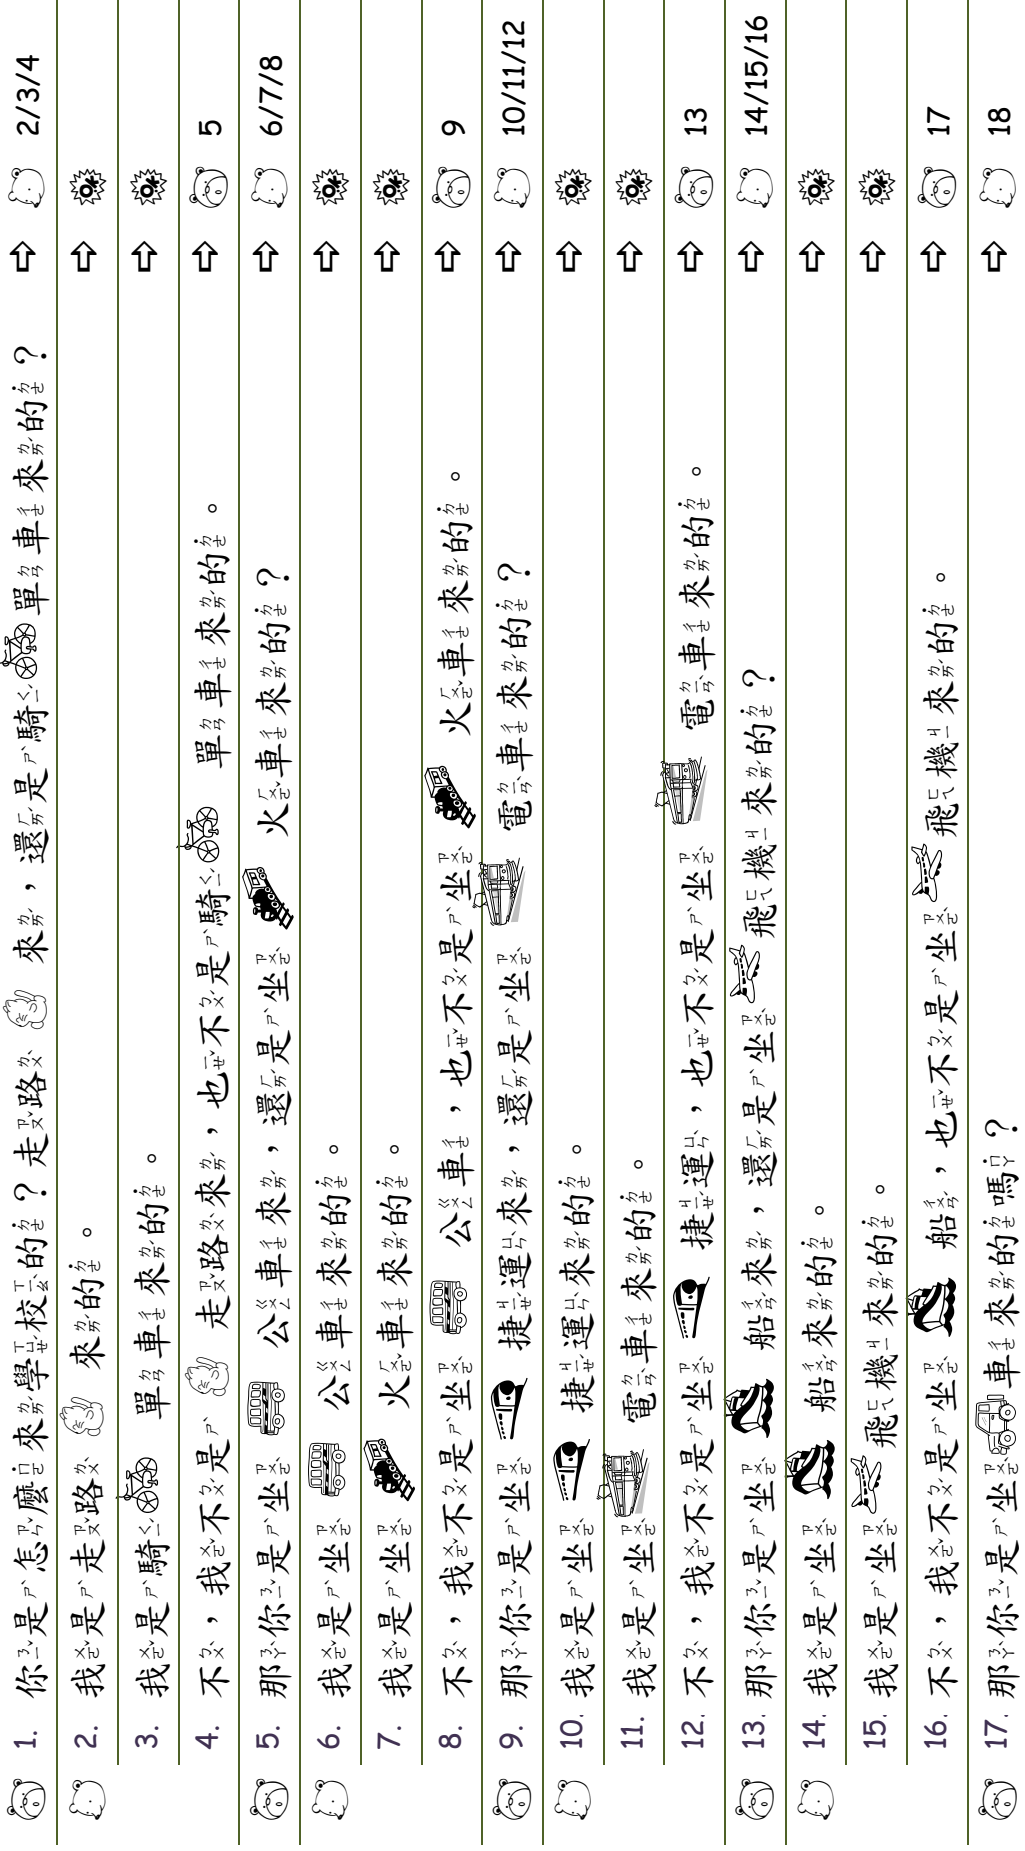 1. 你是怎麼來學校的？走路來，還是騎單車來的？ 2/3/4
2. 我是走路來的。 OK
3. 我是騎單車來的。 OK
4. 不，我不是走路來，也不是騎單車來的。 5
5. 那你是坐公車來，還是坐火車來的？ 6/7/8
6. 我是坐公車來的。 OK
7. 我是坐火車來的。 OK
8. 不，我不是坐公車，也不是坐火車來的。 9
9. 那你是坐捷運來，還是坐電車來的？ 10/11/12
10. 我是坐捷運來的。 OK
11. 我是坐電車來的。 OK
12. 不，我不是坐捷運，也不是坐電車來的。 13
13. 那你是坐船來，還是坐飛機來的？ 14/15/16
14. 我是坐船來的。 OK
15. 我是坐飛機來的。 OK
16. 不，我不是坐船，也不是坐飛機來的。 17
17. 那你是坐車來的嗎？ 18